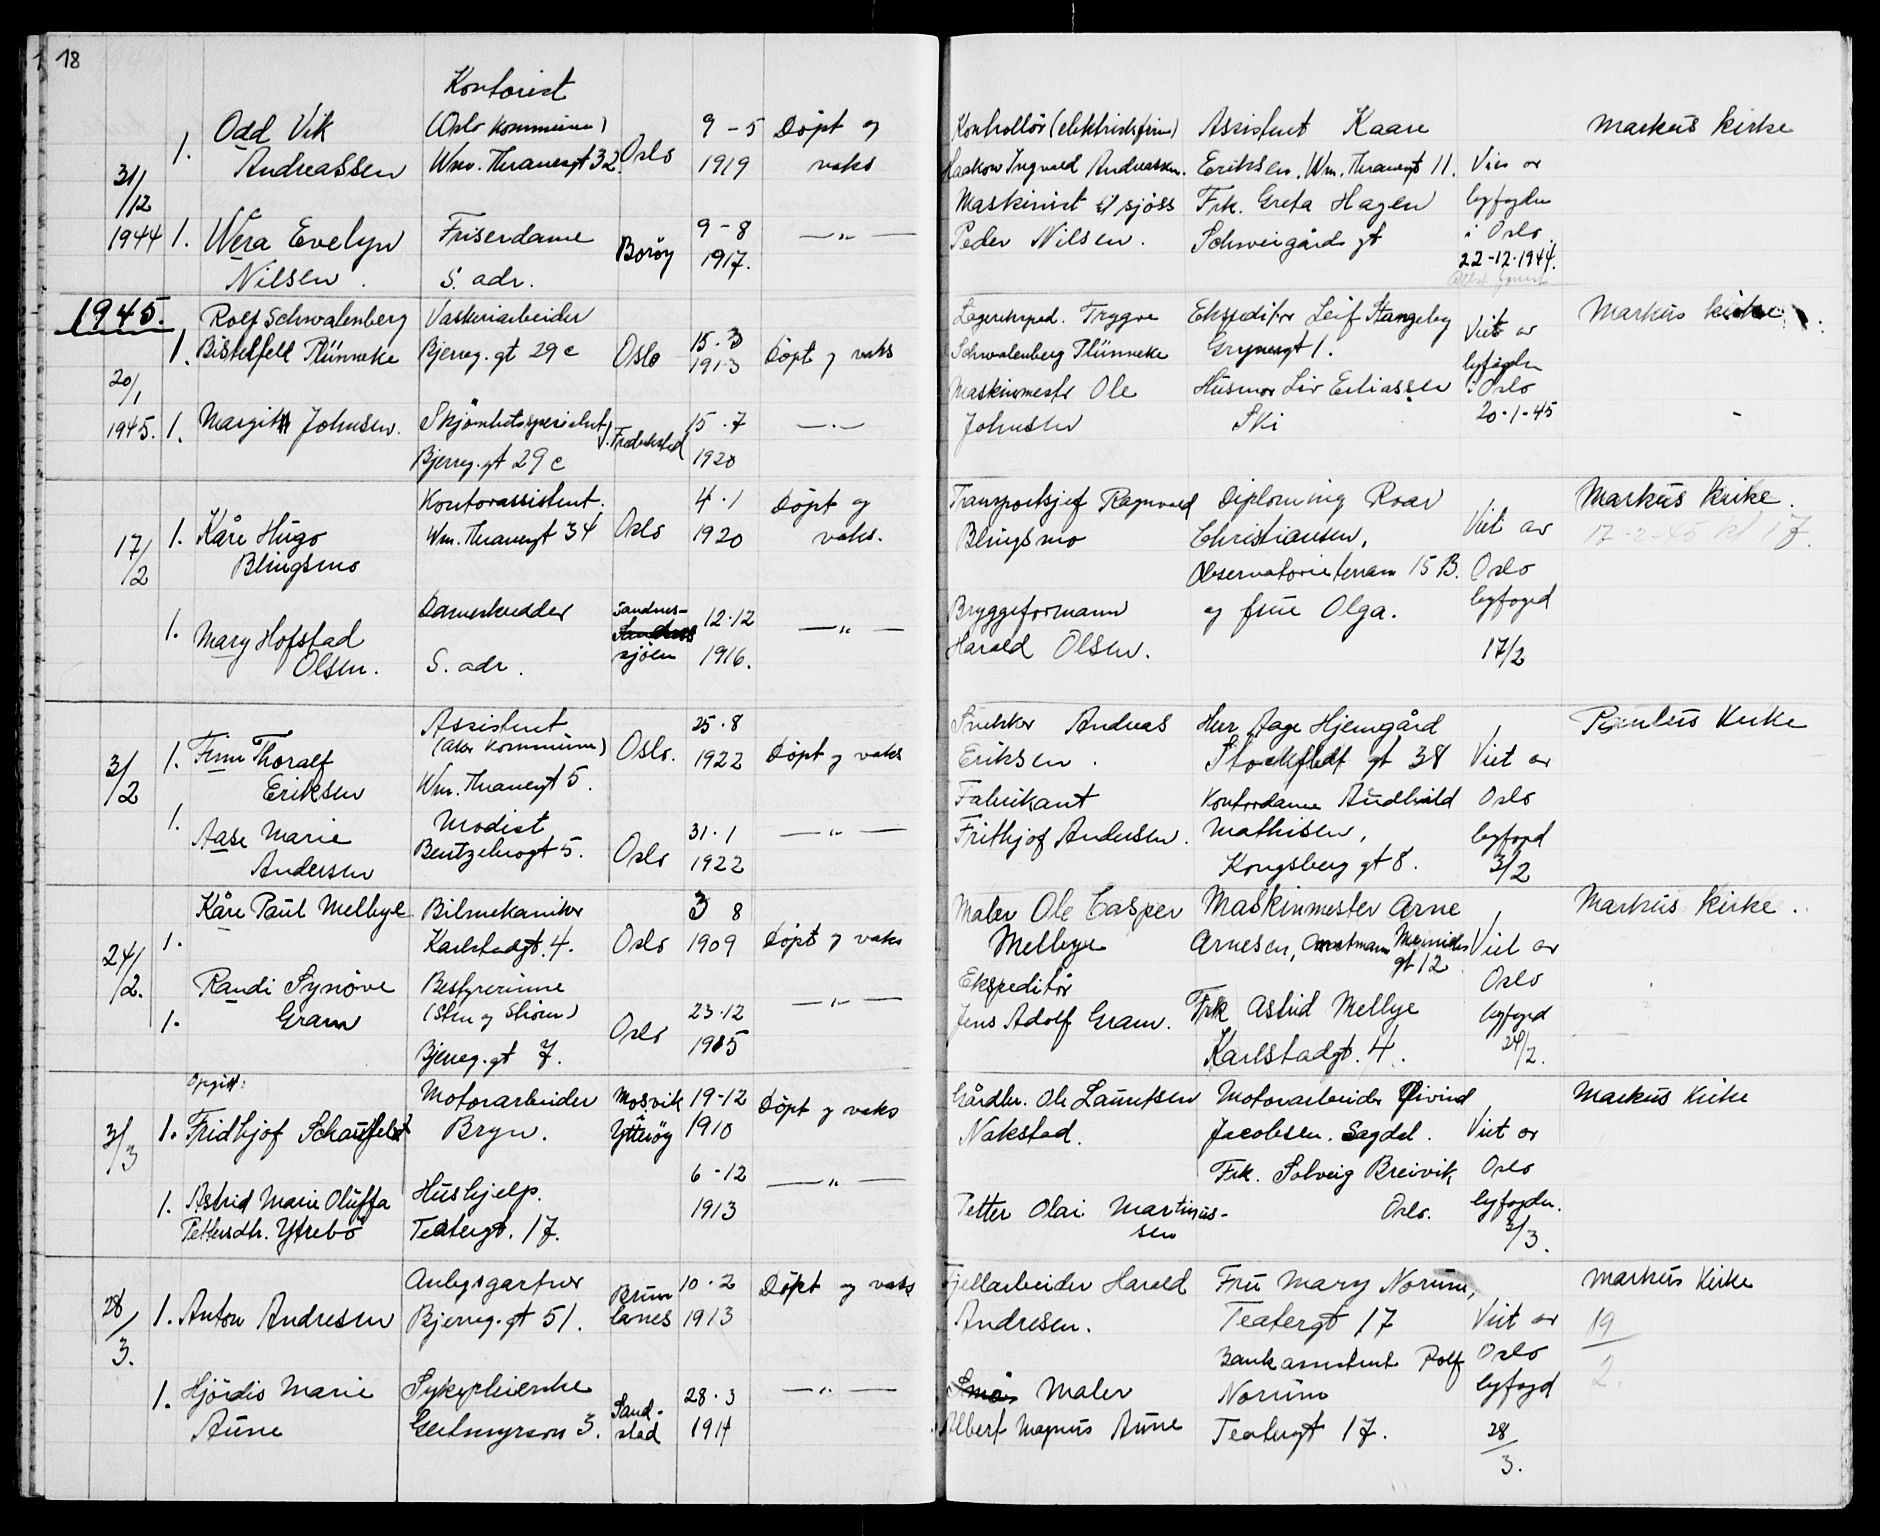 18
Kontorist
Odd Vik (Oslo kommune) 9 - 5 Döpt og Kontrollör (elektriskfirm) Assistent Kaare Markus kirke
1. Andreassen Wm. Thranesgt 32. Oslo 1919 vaks Haakon Ingvald Andreassen. Eriksen, Wm. Thranesgt 11. Viet av
31/12 Maskinist til sjöss Frk. Greta Hagen byfogden
1944 1. Wera Evelyn Friserdame Boröy 9 - 8 —„— Peder Nilsen. Schweigårds gt i Oslo
Nilsen. S. adr. 1917. 22-12-1944.
1945. Rolf Schwalenberg Vaskeriarbeider Lagereksped. Trygve Ekspeditör Leif Stangeby Markus kirke
1. Bistelfell Plünneke Bjerreg. gt 29 c Oslo 15. 3 1913 Döpt og vaks Schwalenberg Plünneke 1. Viet av
20/1 Maskinmester Ole Husmor Liv Eliassen byfogden i Oslo
1945. 1. Margith Johnsen. Skjönhetsspesialist Fredrikstad 15. 7 —„— Johnsen Ski 20-1-45
Bjerreg. gt 29 c 1920
Kontorassistent. 4. 1 Döpt og Transportsjef Ragnvald Diploming Roar Markus kirke.
17/2 1. Kåre Hugo Wm. Thranesgt 34 Oslo 1920 vaks. Blingsmo Christiansen, Viet av 17-2-45 kl 17
Blingsmo Observatorie terrasse 15 B. Oslo
Dameskredder Sandnes- 12.12 —„— Bryggeformann og frue Olga. byfogd
1. Mary Hofstad sjöen
Olsen. S. adr. 1916. Harald Olsen. 17/2
Assistent 25. 8 Snekker Andreas Herr Aage Hjemgård Paulus Kirke
3/2 1. Finn Thoralf (Aker kommune) Oslo. 1922 Döpt og vaks Eriksen. Stockfledt gt 38 Viet av
Eriksen Wm. Thranesgt 5. Fabrikant Kontordame Audhild Oslo
1. Aase Marie Modist 31. 1 —„— Frithjof Andersen. Mathisen, byfogd
Andersen Bentzebrogt 5. Oslo 1922 Kongsberg gt 8. 3/2
Kåre Paul Melbye Bilmekaniker 3 8 Maler Ole Casper Maskinmester Arne Markus kirke.
24/2. 1. Karlstadgt. 4. Oslo 1909 Döpt og vaks Melbye Arnesen, Amtmann Meinichs gt 12 Viet av
Randi Synöve Bestyrerinne —„— Ekspeditör Oslo
1. Gram (Sten og Ström) Oslo 23.12 Jens Adolf Gram. Frk Astrid Melbye byfogd
Bjerreg. gt 7. 1915 Karlstadgt. 4. 24/2.
Opgitt: Motorarbeider Mosvik 19-12 Döpt og vaks Gårdbr. Ole Lauritsen Motorarbeider Öivind Markus Kirke
3/3 1. Fridhjof Schaufeldt Bryn. Ytteröy 1910 Nakstad. Jacobsen. Sagdal. Viet av
6-12 —„— Frk. Solveig Breivik, Oslo
1. Astrid Marie Oluffa Hushjelp. 1913 Petter Olai Martinus- Oslo. byfogden.
Pettersdtr. Ytrebö Teatergt. 17. sen 3/3.
Anlegsgartner Brun- 10. 2 Döpt og vaks Fjellarbeider Harald Fru Mary Norum, Markus Kirke
28/3. 1. Anton Andresen Bjerreg. gt 51. lanes 1913 Andresen. Teatergt 17 Viet av 19/2.
Bankassistent Rolf Oslo
1. Hjördis Marie Sykepleierske Sand- 28. 3 —„— Maler Norum byfogd
Aune Geitmyrsvn 3. stad 1914 Albert Magnus Aune Teatergt 17. 28/3.